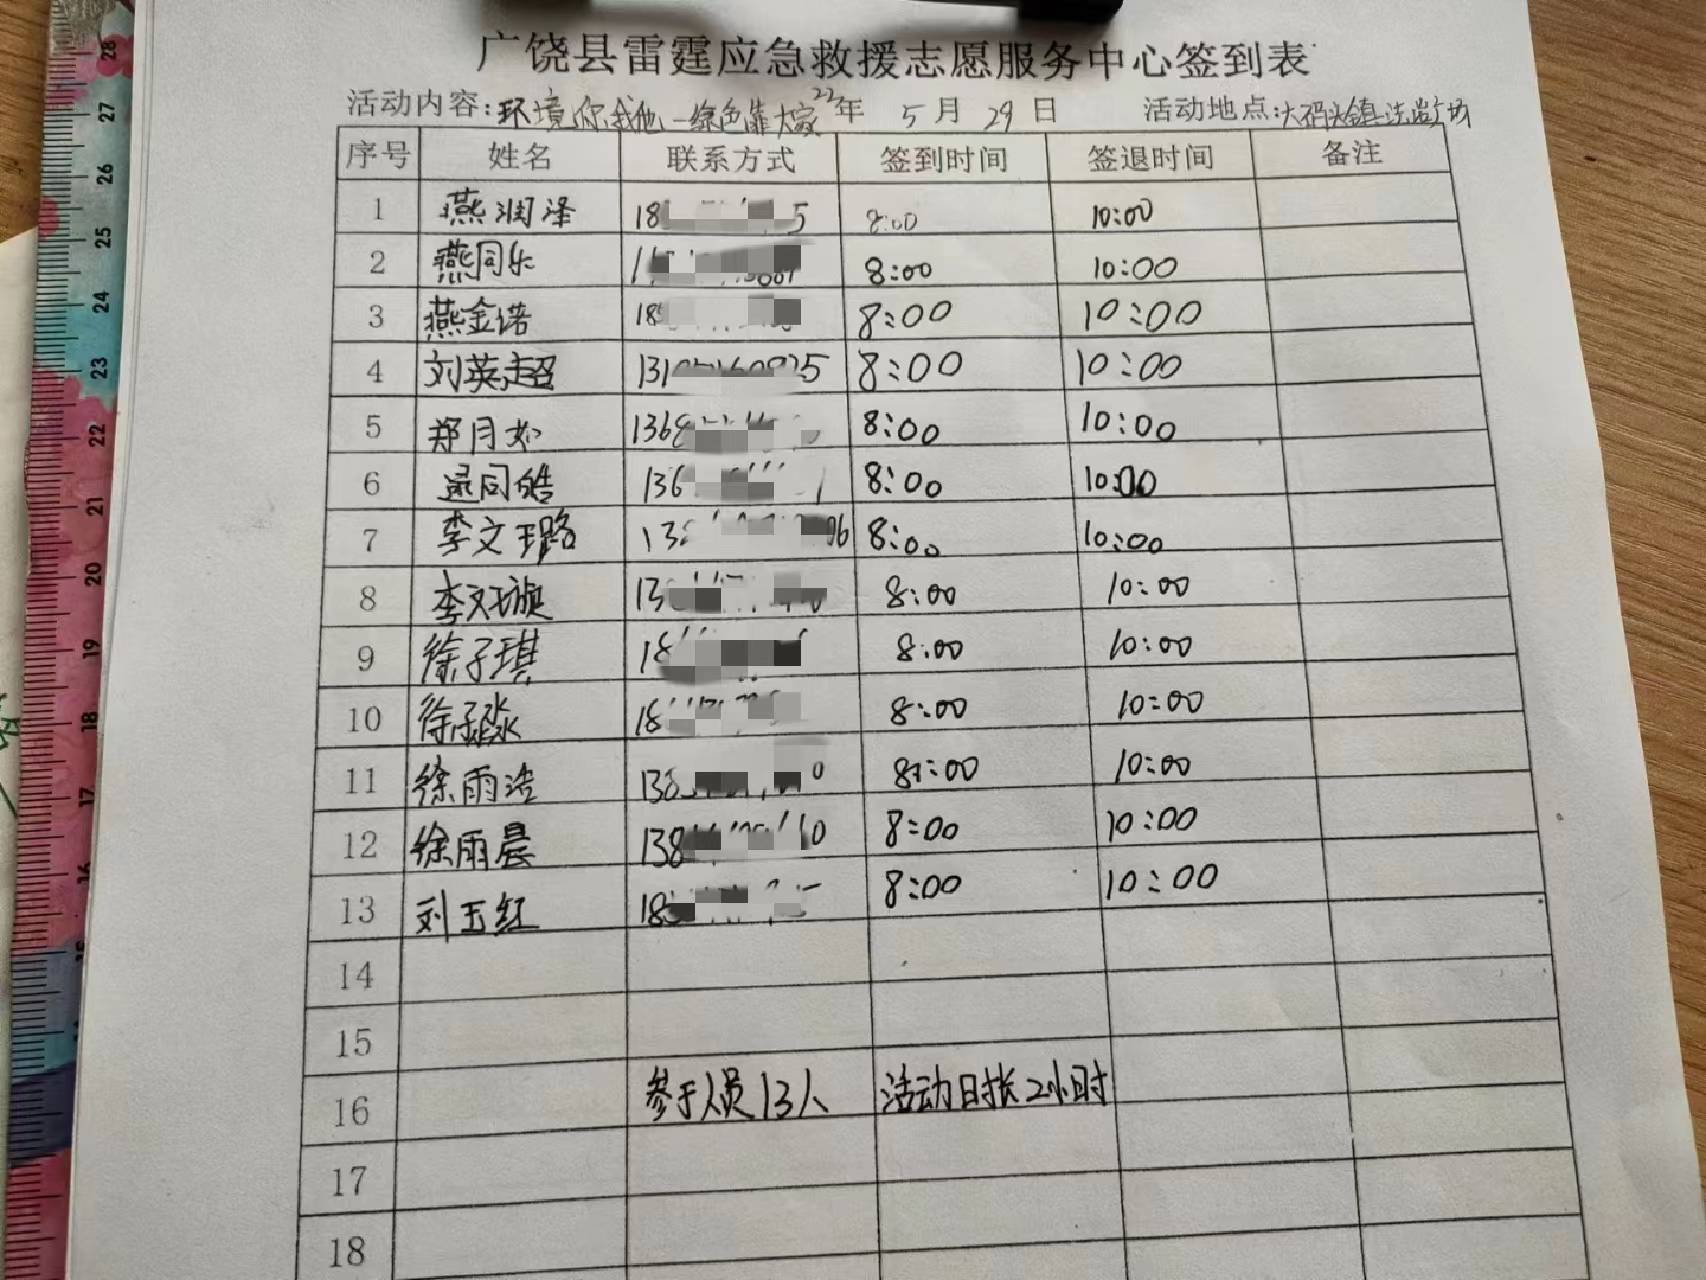 广饶县雷霆应急救援志愿服务中心签到表
活动内容:环境你我他一绿色靠大家 22年 5月 29日 活动地点:大码头镇法治广场
序号 姓名 联系方式 签到时间 签退时间 备注
1 燕润泽 18 5 8:00 10:00
2 燕同乐 8:00 10:00
3 燕金诺 18 8:00 10:00
4 刘英超 131 5 8:00 10:00
5 郑月如 136 8:00 10:00
6 同皓 136 8:00 10:00
7 李文璐 13 06 8:00 10:00
8 李双璇 13 8:00 10:00
9 徐子琪 18 8:00 10:00
10 徐子淼 18 8:00 10:00
11 徐雨浩 138 0 8:00 10:00
12 徐雨晨 138 10 8:00 10:00
13 刘玉红 18 8:00 10:00
14
15
16 参于人员13人 活动时长2小时
17
18
28
27
26
25
24
23
22
21
20
19
18
17
16